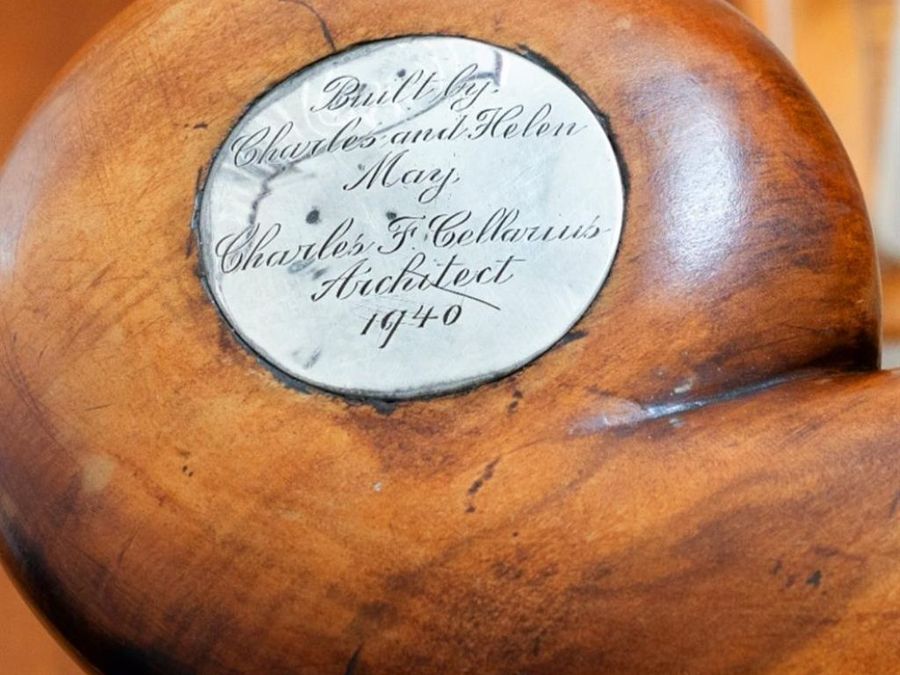 Built by
Charles and Helen
May
Charles F. Cellarius
Architect
1940